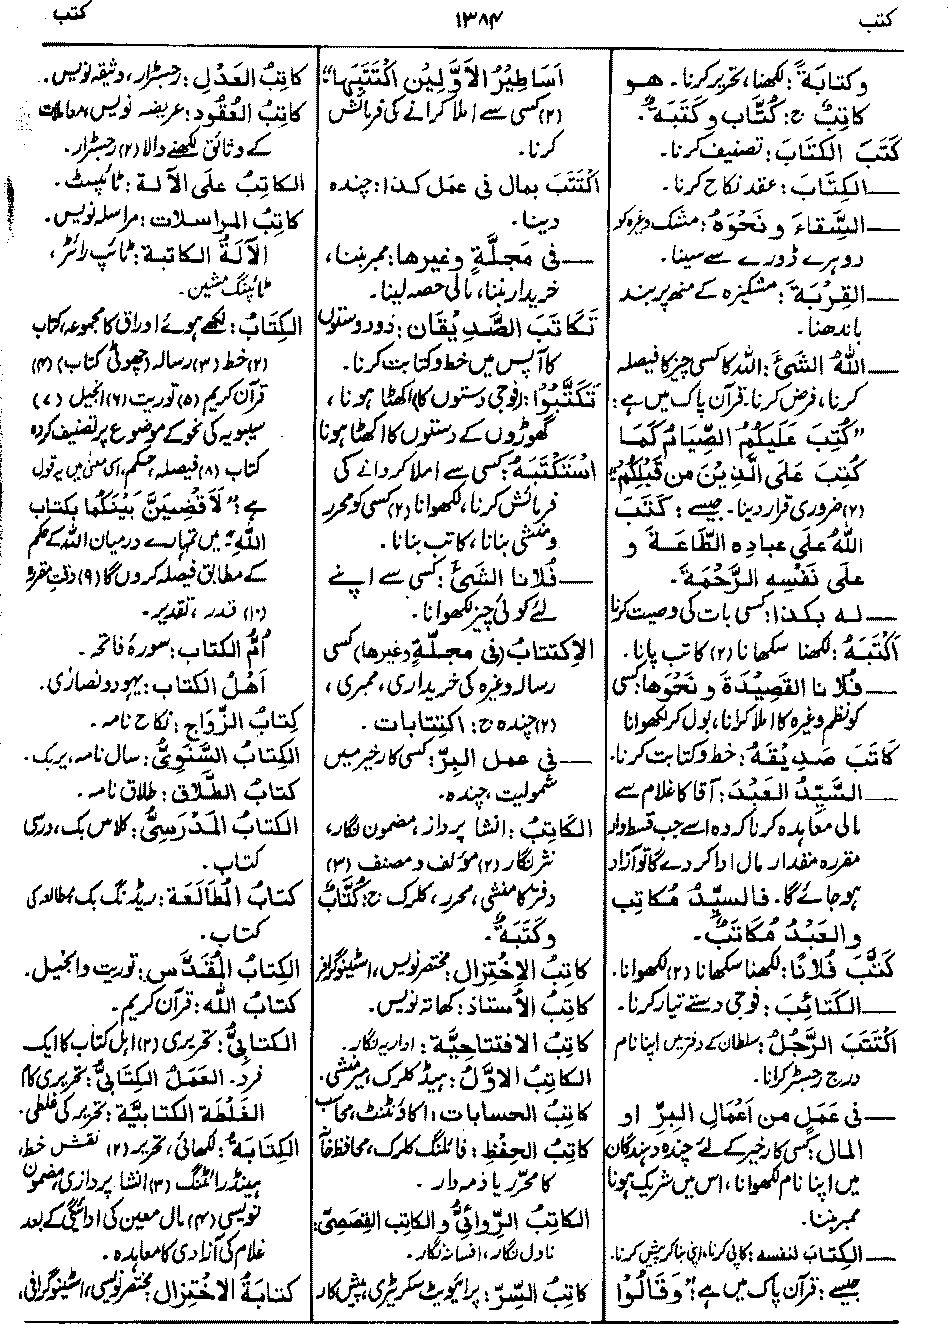 کتب
۱۳۸۴
کتب
وكتابةً: لکھنا، تحریر کرنا۔ هـو
كاتِبٌ ج: كُتَّاب وكَتَبَةٌ۔
كَتَبَ الكِتَابَ: تصنیف کرنا۔
— الكِتَابَ: عقد نکاح کرنا۔
— السِّقاءَ و نَحْوَهُ: مشک وغیرہ کو
دوہرے ڈورے سے سینا۔
— القِرْبَةَ: مشکیزہ کے منھ پر بند
باندھنا۔
— اللهُ الشَّئَ: اللہ کا کسی چیز کا فیصلہ
کرنا، فرض کرنا۔ قرآن پاک میں ہے:
”كُتِبَ عَلَيْكُمُ الصِّيَامُ كَمَا
كُتِبَ عَلَى الَّذِيْنَ مِن قَبْلِكُمْ“
(۲) ضروری قرار دینا۔ جیسے: كَتَبَ
اللهُ على عِبادِه الطَّاعَةَ و
على نَفْسِهِ الرَّحْمَةَ۔
— له بكذا: کسی بات کی وصیت کرنا
أَكْتَبَهُ: لکھنا سکھانا (۲) کاتب پانا۔
— فُلَانا القَصِيْدَةَ و نَحْوَها: کسی
کو نظم وغیرہ کا املا کرانا، بول کر لکھوانا
كَاتَبَ صَدِيقَهُ: خط وکتابت کرنا۔
— السَّيِّدُ العَبْدَ: آقا کا غلام سے
مالی معاہدہ کرنا کہ وہ اسے جب قسط وار
مقررہ مقدار مال ادا کردے گا تو آزاد
ہوجائے گا۔ فالسيِّدُ مُكاتِب
والعَبْدُ مُكاتَبٌ۔
كَتَّبَ فُلَانًا: لکھنا سکھانا (۲) لکھوانا۔
— الكتَائِبَ: فوجی دستے تیار کرنا۔
اكْتَتَبَ الرَّجُلُ: سلطان کے دفتر میں اپنا نام
درج رجسٹر کرانا۔
— فى عَمَلٍ من أَعْمَالِ البِرِّ او
المال: کسی کار خیر کے لئے چندہ دہندگان
میں اپنا نام لکھوانا، اس میں شریک ہونا
ممبر بننا۔
— الكتابَ لنفسه: کاپی کرنا،
جیسے: قرآن پاک میں ہے: ”وَقَالُوْا
أَسَاطِيْرُ الأَوَّلِيْنَ اكْتَتَبَهَا“
(۲) کسی سے املا کرانے کی فرمائش
کرنا۔
اكْتَتَبَ بمال فى عمل كذا: چندہ
دینا۔
— فى مَجلَّةٍ وغيرها: ممبر بننا،
خریدار بننا، مالی حصہ لینا۔
تَكَاتَبَ الصَّدِيْقَان: دو دوستوں
کا آپس میں خط وکتابت کرنا۔
تَكَتَّبُوْا: (فوجی دستوں کا) اکھٹا ہونا،
گھوڑوں کے دستوں کا اکھٹا ہونا
اسْتَكْتَبَهُ: کسی سے املا کردانے کی
فرمائش کرنا، لکھوانا (۲) کسی کو محرر
ومنشی بنانا، کاتب بنانا۔
— فُلانا الشئَ: کسی سے اپنے
لئے کوئی چیز لکھوانا۔
الاكْتِتابُ (فى مجلّةٍ وغيرها) کسی
رسالہ وغیرہ کی خریداری، ممبری،
(۲) چندہ ج: اكْتِتابات۔
— فى عمل البِرِّ: کسی کار خیر میں
شمولیت، چندہ۔
الكَاتِبُ: انشا پرداز، مضمون نگار،
نثر نگار (۲) مؤلف ومصنف (۳)
دفتر کا منشی، محرر، کلرک ج: كُتَّابٌ
وكَتَبَةٌ۔
كاتِبُ الاخْتِزال: مختصر نویس، اسٹینوگرافر
كاتِبُ الأُستاذ: کھاتہ نویس۔
كاتِبُ الافتتاحيَّة: اداریہ نگار۔
الكاتبُ الاوَّلُ: ہیڈ کلرک، میر منشی۔
كاتِبُ الحسابات: اکاؤنٹنٹ، محاسب
كاتِبُ الحِفْظِ: فائلنگ کلرک، محافظ خانہ
کا محرر یا ذمہ دار۔
الكاتبُ الرِّوائيُّ والكاتب القِصَصِيّ:
ناول نگار، افسانہ نگار۔
كاتِبُ السِّرِّ: پرائیویٹ سکریٹری، پیش کار
كاتِبُ العَدْلِ: رجسٹرار، وثیقہ نویس۔
كاتِبُ العُقُود: عریضہ نویس، معاملات
کے وثائق لکھنے والا (۲) رجسٹرار۔
الكاتبُ على الآلة: ٹائپسٹ۔
كاتبُ المراسلات: مراسلہ نویس۔
الآلةُ الكاتبة: ٹائپ رائٹر،
ٹائپنگ مشین۔
الكتابُ: لکھے ہوئے اوراق کا مجموعہ، کتاب
(۲) خط (۳) رسالہ (چھوٹی کتاب) (۴)
قرآن کریم (۵) توریت (۶) انجیل (۷)
سیبویہ کی نحو کے موضوع پر تصنیف کردہ
کتاب (۸) فیصلہ، حکم، اسی معنی میں یہ قول
ہے: ”لَأَقْضِيَنَّ بَيْنَكُما بِكتاب
اللهِ“ میں تمہارے درمیان اللہ کے حکم
کے مطابق فیصلہ کروں گا (۹) وقت مقررہ
(۱۰) قدر، تقدیر۔
أُمُّ الكتاب: سورۂ فاتحہ۔
أَهْلُ الكتاب: یہود ونصاریٰ۔
كِتابُ الزَّواج: نکاح نامہ۔
الكتابُ السَّنَوِيُّ: سال نامہ، یر بک۔
كتابُ الطَّلاق: طلاق نامہ۔
الكتابُ المَدْرَسِيُّ: کلاس بک، درسی
کتاب۔
كتابُ المُطَالَعَة: ریڈنگ بک، مطالعہ کی
کتاب۔
الكتابُ المُقَدَّس: توریت وانجیل۔
كتابُ الله: قرآن کریم۔
الكتابيُّ: تحریری (۲) اہل کتاب کا ایک
فرد۔ العَمَلُ الكتابيُّ: تحریری کام
الغَلْطَة الكتابيَّة: تحریر کی غلطی۔
الكِتابَةُ: لکھائی، تحریر (۲) نقش خط،
ہینڈ رائٹنگ (۳) انشا پردازی، مضمون
نویسی (۴) مال معین کی ادائیگی کے بعد
غلام کی آزادی کا معاہدہ۔
كتابةُ الاخْتِزال: مختصر نویسی، اسٹینوگرافی،